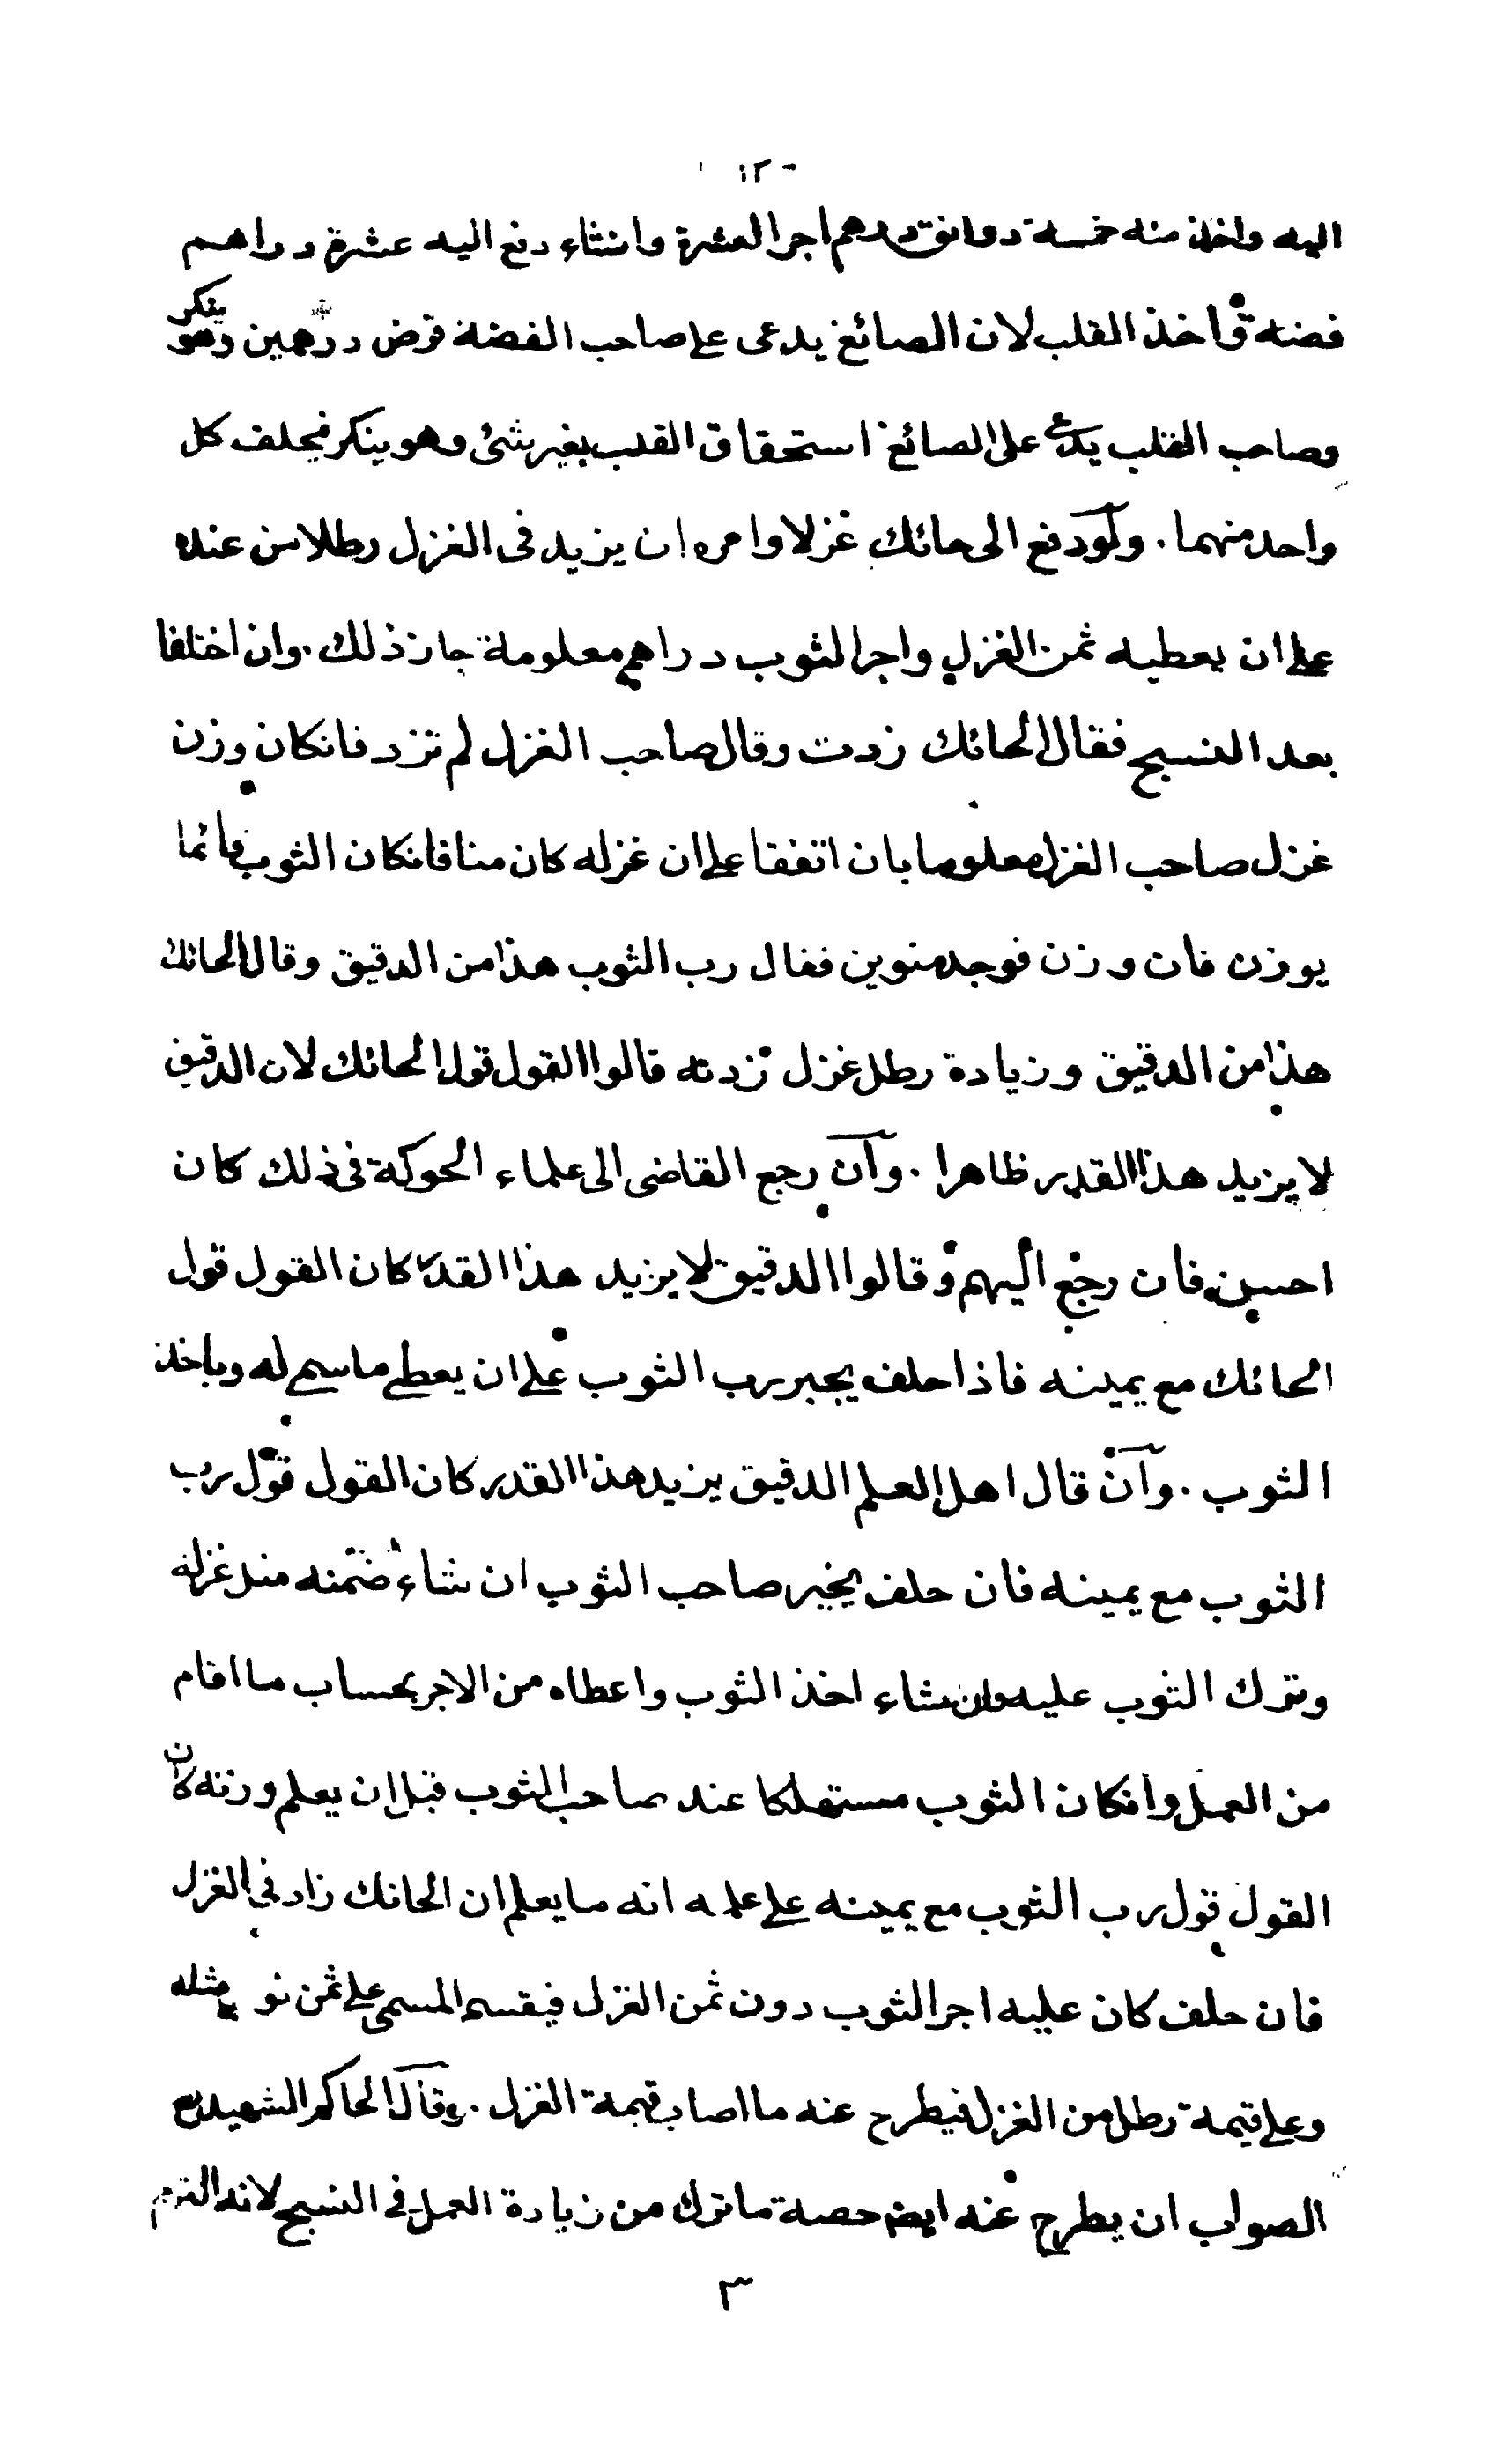 ١٢٠
اليه واخذ منه خمسة دوانق درهم اجر العشرة وان شاء دفع اليه عشرة دراهم
فضة واخذ القلب لان الصائغ يدعى على صاحب الفضة قرض درهمين وهو ينكر
وصاحب القلب يدعى على الصائغ استحقاق القلب بغير شئ وهو ينكر فيحلف كل
واحد منهما . ولو دفع الى حائك غزلا وامره ان يزيد فى الغزل رطلا من عنده
على ان يعطيه ثمن الغزل واجر الثوب دراهم معلومة جاز ذلك . وان اختلفا
بعد النسج فقال الحائك زدت وقال صاحب الغزل لم تزد فانكان وزن
غزل صاحب الغزل معلوما بان اتفقا على ان غزله كان منا فانكان الثوب قائما
يوزن فان وزن فوجد منوين فقال رب الثوب هذا من الدقيق وقال الحائك
هذا من الدقيق وزيادة رطل غزل زدته قالوا القول قول الحائك لان الدقيق
لا يزيد هذا القدر ظاهرا . وان رجع القاضى الى علماء الحوكة فى ذلك كان
احسن فان رجع اليهم وقالوا الدقيق لا يزيد هذا القدر كان القول قول
الحائك مع يمينه فاذا حلف يجبر رب الثوب على ان يعطى ما سمى له وياخذ
الثوب . وان قال اهل العلم الدقيق يزيد هذا القدر كان القول قول رب
الثوب مع يمينه فان حلف يخير صاحب الثوب ان شاء ضمنه مثل غزله
وترك الثوب عليه وان شاء اخذ الثوب واعطاه من الاجر بحساب ما اقام
من العمل وانكان الثوب مستهلكا عند صاحب الثوب قبل ان يعلم وزنه كان
القول قول رب الثوب مع يمينه على علمه انه ما يعلم ان الحائك زاد فى الغزل
فان حلف كان عليه اجر الثوب دون ثمن الغزل فيقسم المسمى على ثمن ثوب مثله
وعلى قيمة رطل من الغزل فيطرح عنه ما اصاب قيمة الغزل . وقال الحاكم الشهيد رح
الصواب ان يطرح عنه ايضا حصة ما ترك من زيادة العمل فى النسج لانه التزم
٣